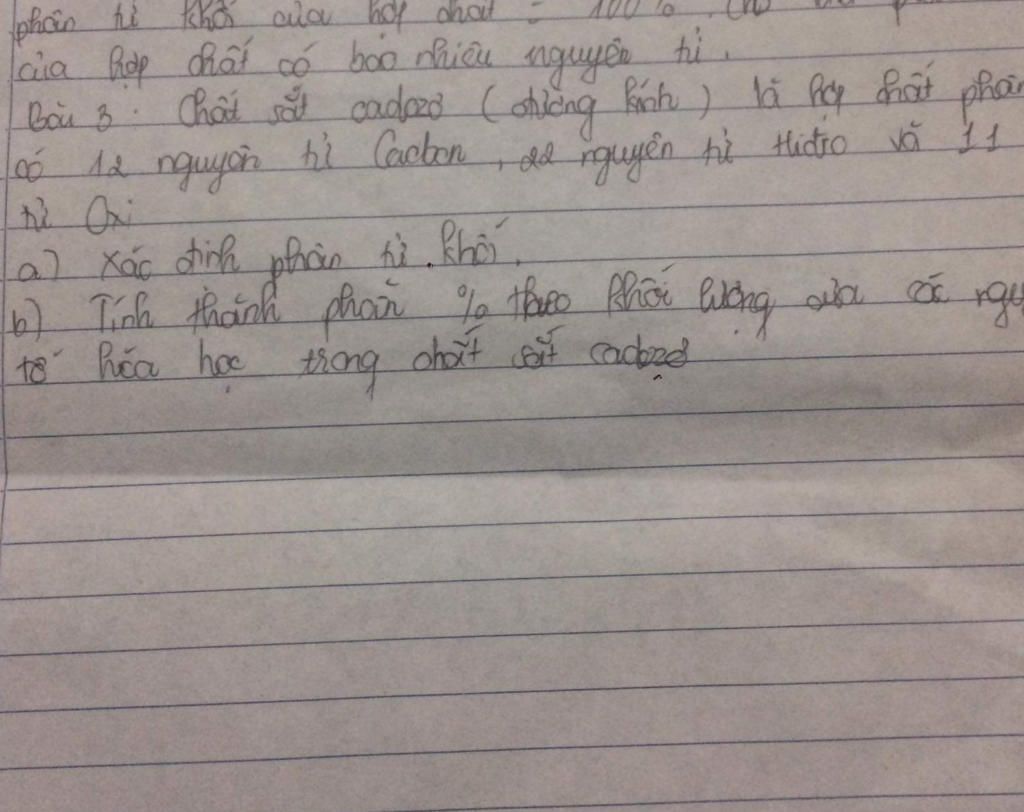 phân tử khối của hợp chất = 100%.
của hợp chất có bao nhiêu nguyên tử.
Bài 3: Chất sắt cadozo (đường kính) là hợp chất phân
có 12 nguyên tử Cacbon, 22 nguyên tử Hidro và 11
tử Oxi
a) Xác định phân tử khối.
b) Tính thành phần % theo khối lượng của các ngu
tố hóa học trong chất sắt cadozo